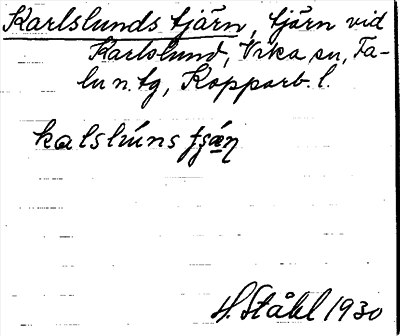 Karlslunds tjärn, tjärn vid
Karlslund, Vika sn, Fa-
lu n. tg, Kopparb. l.
kalslúns tʂǽɳ
H. Ståhl 1930